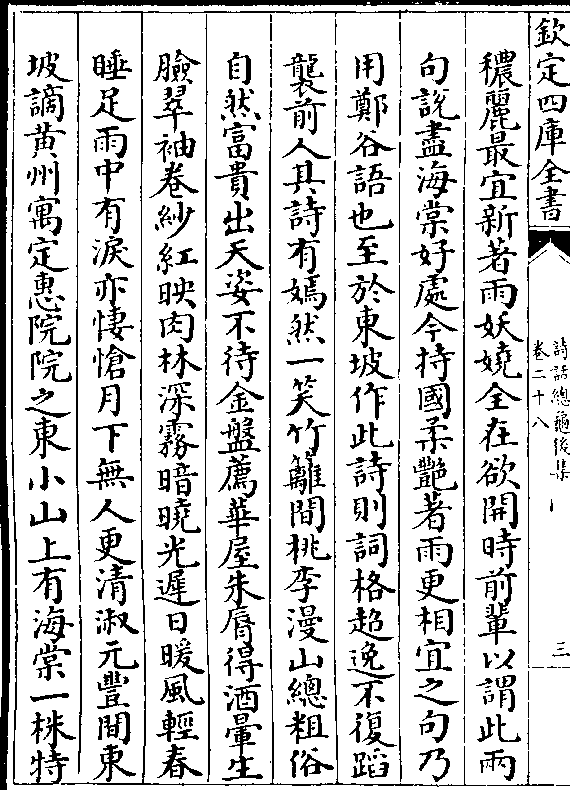 欽定四庫全書
詩話總龜後集
卷二十八
三
穠麗最宜新著雨妖嬈全在欲開時前輩以謂此兩
句說盡海棠好處今持國柔艷著雨更相宜之句乃
用鄭谷語也至於東坡作此詩則詞格超逸不復蹈
襲前人其詩有嫣然一笑竹籬間桃李漫山總粗俗
自然富貴出天姿不待金盤薦華屋朱脣得酒暈生
臉翠袖卷紗紅映肉林深霧暗曉光遲日暖風輕春
睡足雨中有淚亦悽愴月下無人更清淑元豐間東
坡謫黃州寓定惠院院之東小山上有海棠一株特